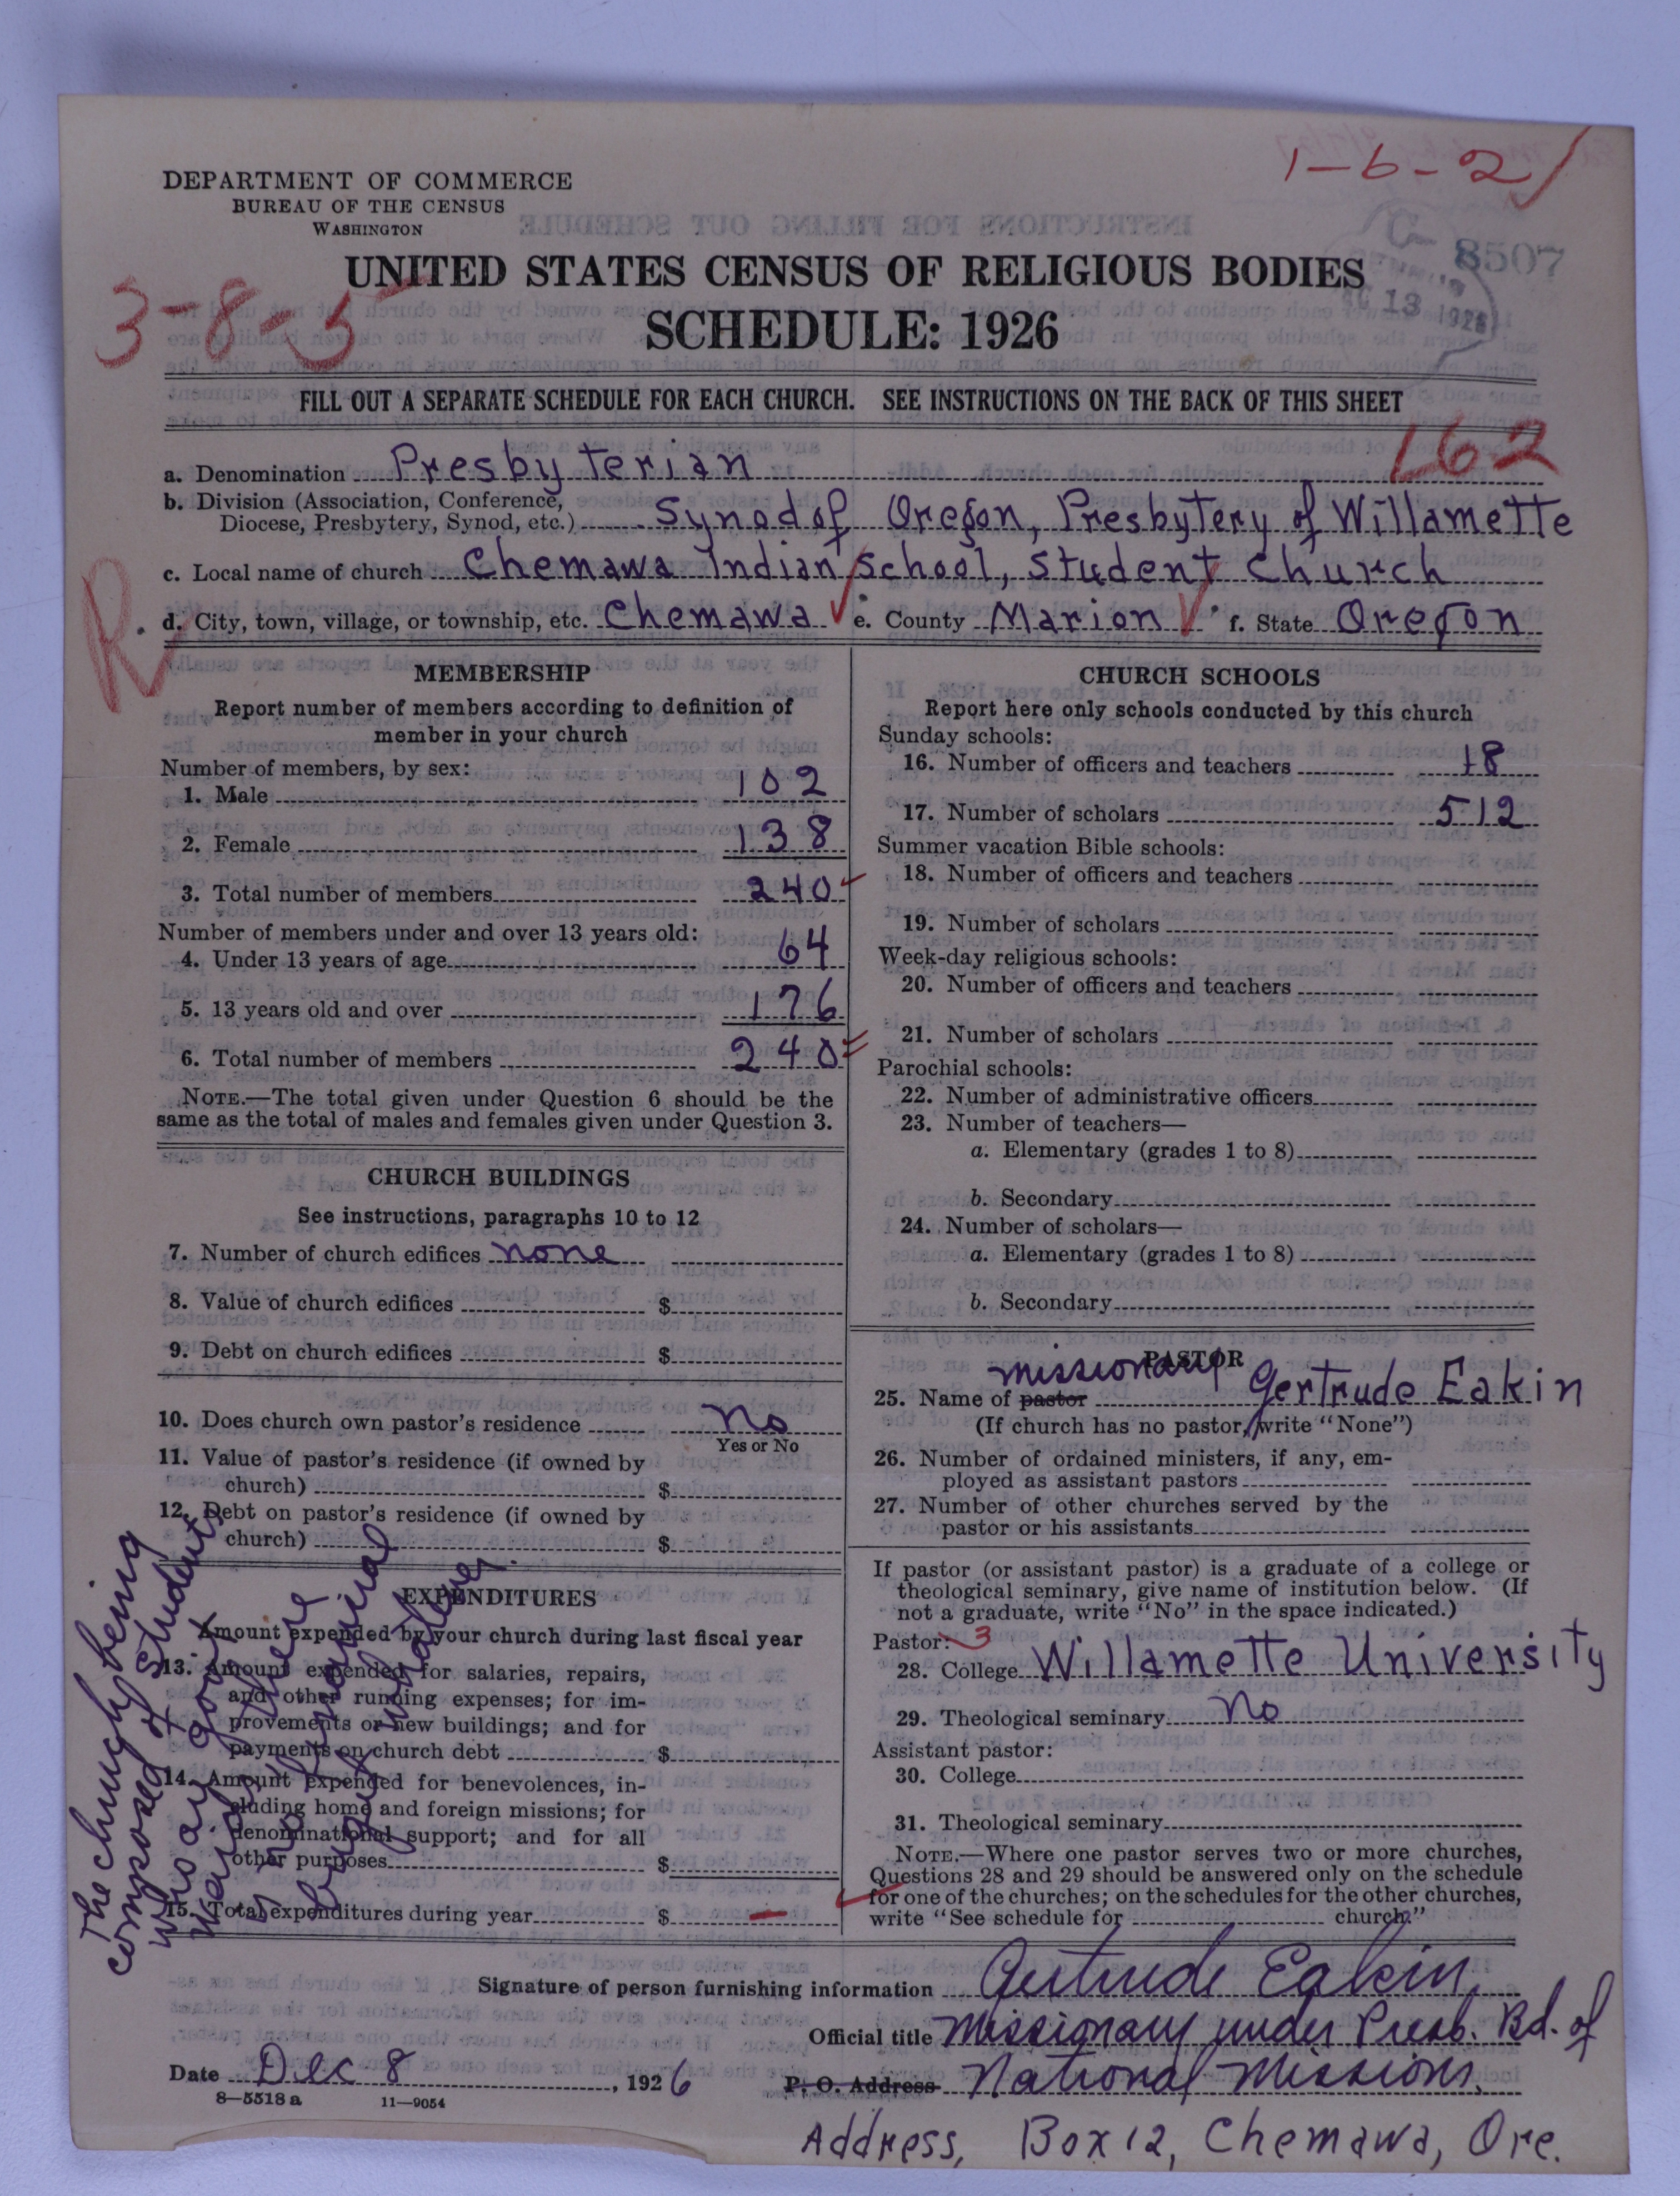 1-6-2/
DEPARTMENT OF COMMERCE
BUREAU OF THE CENSUS
WASHINGTON
8507
13 1926
UNITED STATES CENSUS OF RELIGIOUS BODIES
3-8-5
SCHEDULE: 1926
FILL OUT A SEPARATE SCHEDULE FOR EACH CHURCH. SEE INSTRUCTIONS ON THE BACK OF THIS SHEET
162
a. Denomination Presbyterian
b. Division (Association, Conference,
Diocese, Presbytery, Synod, etc.) Synod of Oregon, Presbytery of Willamette
c. Local name of church Chemawa Indian School, Student Church
R
d. City, town, village, or township, etc. Chemawa e. County Marion f. State Oregon
MEMBERSHIP
Report number of members according to definition of
member in your church
Number of members, by sex:
1. Male 102
2. Female 138
3. Total number of members 240
Number of members under and over 13 years old:
4. Under 13 years of age 64
5. 13 years old and over 176
6. Total number of members 240
NOTE.—The total given under Question 6 should be the
same as the total of males and females given under Question 3.
CHURCH BUILDINGS
See instructions, paragraphs 10 to 12
7. Number of church edifices none
8. Value of church edifices $
9. Debt on church edifices $
10. Does church own pastor's residence no
Yes or No
11. Value of pastor's residence (if owned by
church) $
12. Debt on pastor's residence (if owned by
church) $
EXPENDITURES
Amount expended by your church during last fiscal year
13. Amount expended for salaries, repairs,
and other running expenses; for im-
provements or new buildings; and for
payments on church debt $
14. Amount expended for benevolences, in-
cluding home and foreign missions; for
denominational support; and for all
other purposes $
15. Total expenditures during year $ —
The church being
composed of students
who are gov't
wards there
is no financial
budget undertaken.
CHURCH SCHOOLS
Report here only schools conducted by this church
Sunday schools:
16. Number of officers and teachers 18
17. Number of scholars 512
Summer vacation Bible schools:
18. Number of officers and teachers
19. Number of scholars
Week-day religious schools:
20. Number of officers and teachers
21. Number of scholars
Parochial schools:
22. Number of administrative officers
23. Number of teachers—
a. Elementary (grades 1 to 8)
b. Secondary
24. Number of scholars—
a. Elementary (grades 1 to 8)
b. Secondary
PASTOR
missionary
25. Name of pastor Gertrude Eakin
(If church has no pastor, write "None")
26. Number of ordained ministers, if any, em-
ployed as assistant pastors
27. Number of other churches served by the
pastor or his assistants
If pastor (or assistant pastor) is a graduate of a college or
theological seminary, give name of institution below. (If
not a graduate, write "No" in the space indicated.)
Pastor: 3
28. College Willamette University
29. Theological seminary No
Assistant pastor:
30. College
31. Theological seminary
NOTE.—Where one pastor serves two or more churches,
Questions 28 and 29 should be answered only on the schedule
for one of the churches; on the schedules for the other churches,
write "See schedule for church."
Signature of person furnishing information Gertrude Eakin
Official title Missionary under Presb. Bd. of
Date Dec 8, 1926 P. O. Address National Missions.
8—5518 a 11—9054
Address, Box 12, Chemawa, Ore.